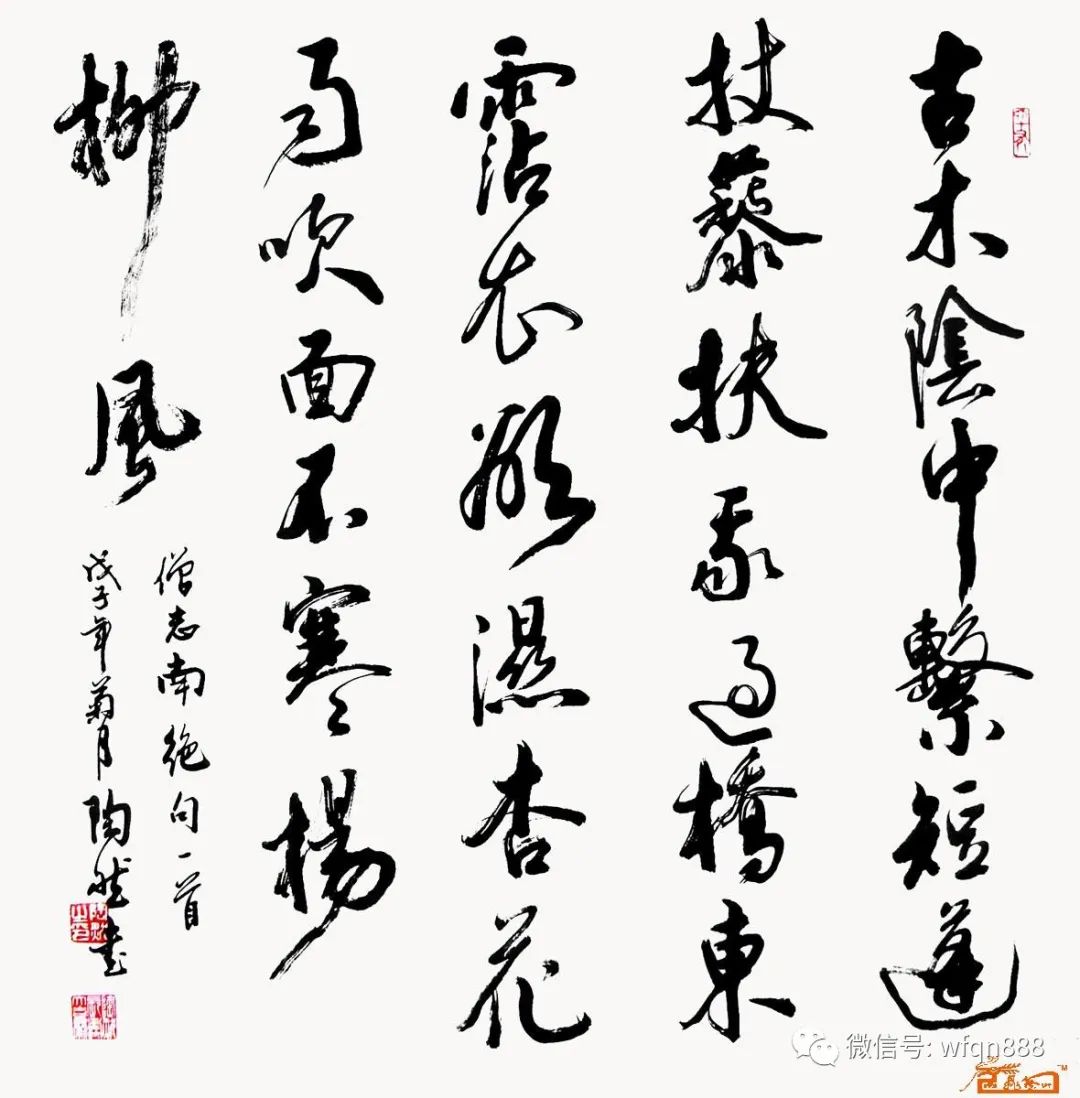 古木陰中繫短蓬
杖藜扶我過橋東
霑衣欲濕杏花
雨吹面不寒楊
柳風
僧志南絕句一首
戊子年菊月陶然书
微信号: wfqn888